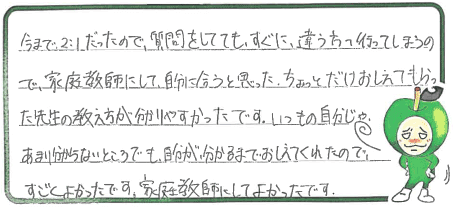 今まで、2:1だったので、質問をしてても、すぐに、違うちっ行ってしまうの
で、家庭教師にして、自分に合うと思った。ちょっとだけおしえてもらっ
た先生の教え方が分かりやすかったです。いつもの自分じゃ、
あまり分からないところでも、自分が分かるまでおしえてくれたので、
すごくよかったです。家庭教師にしてよかったです。